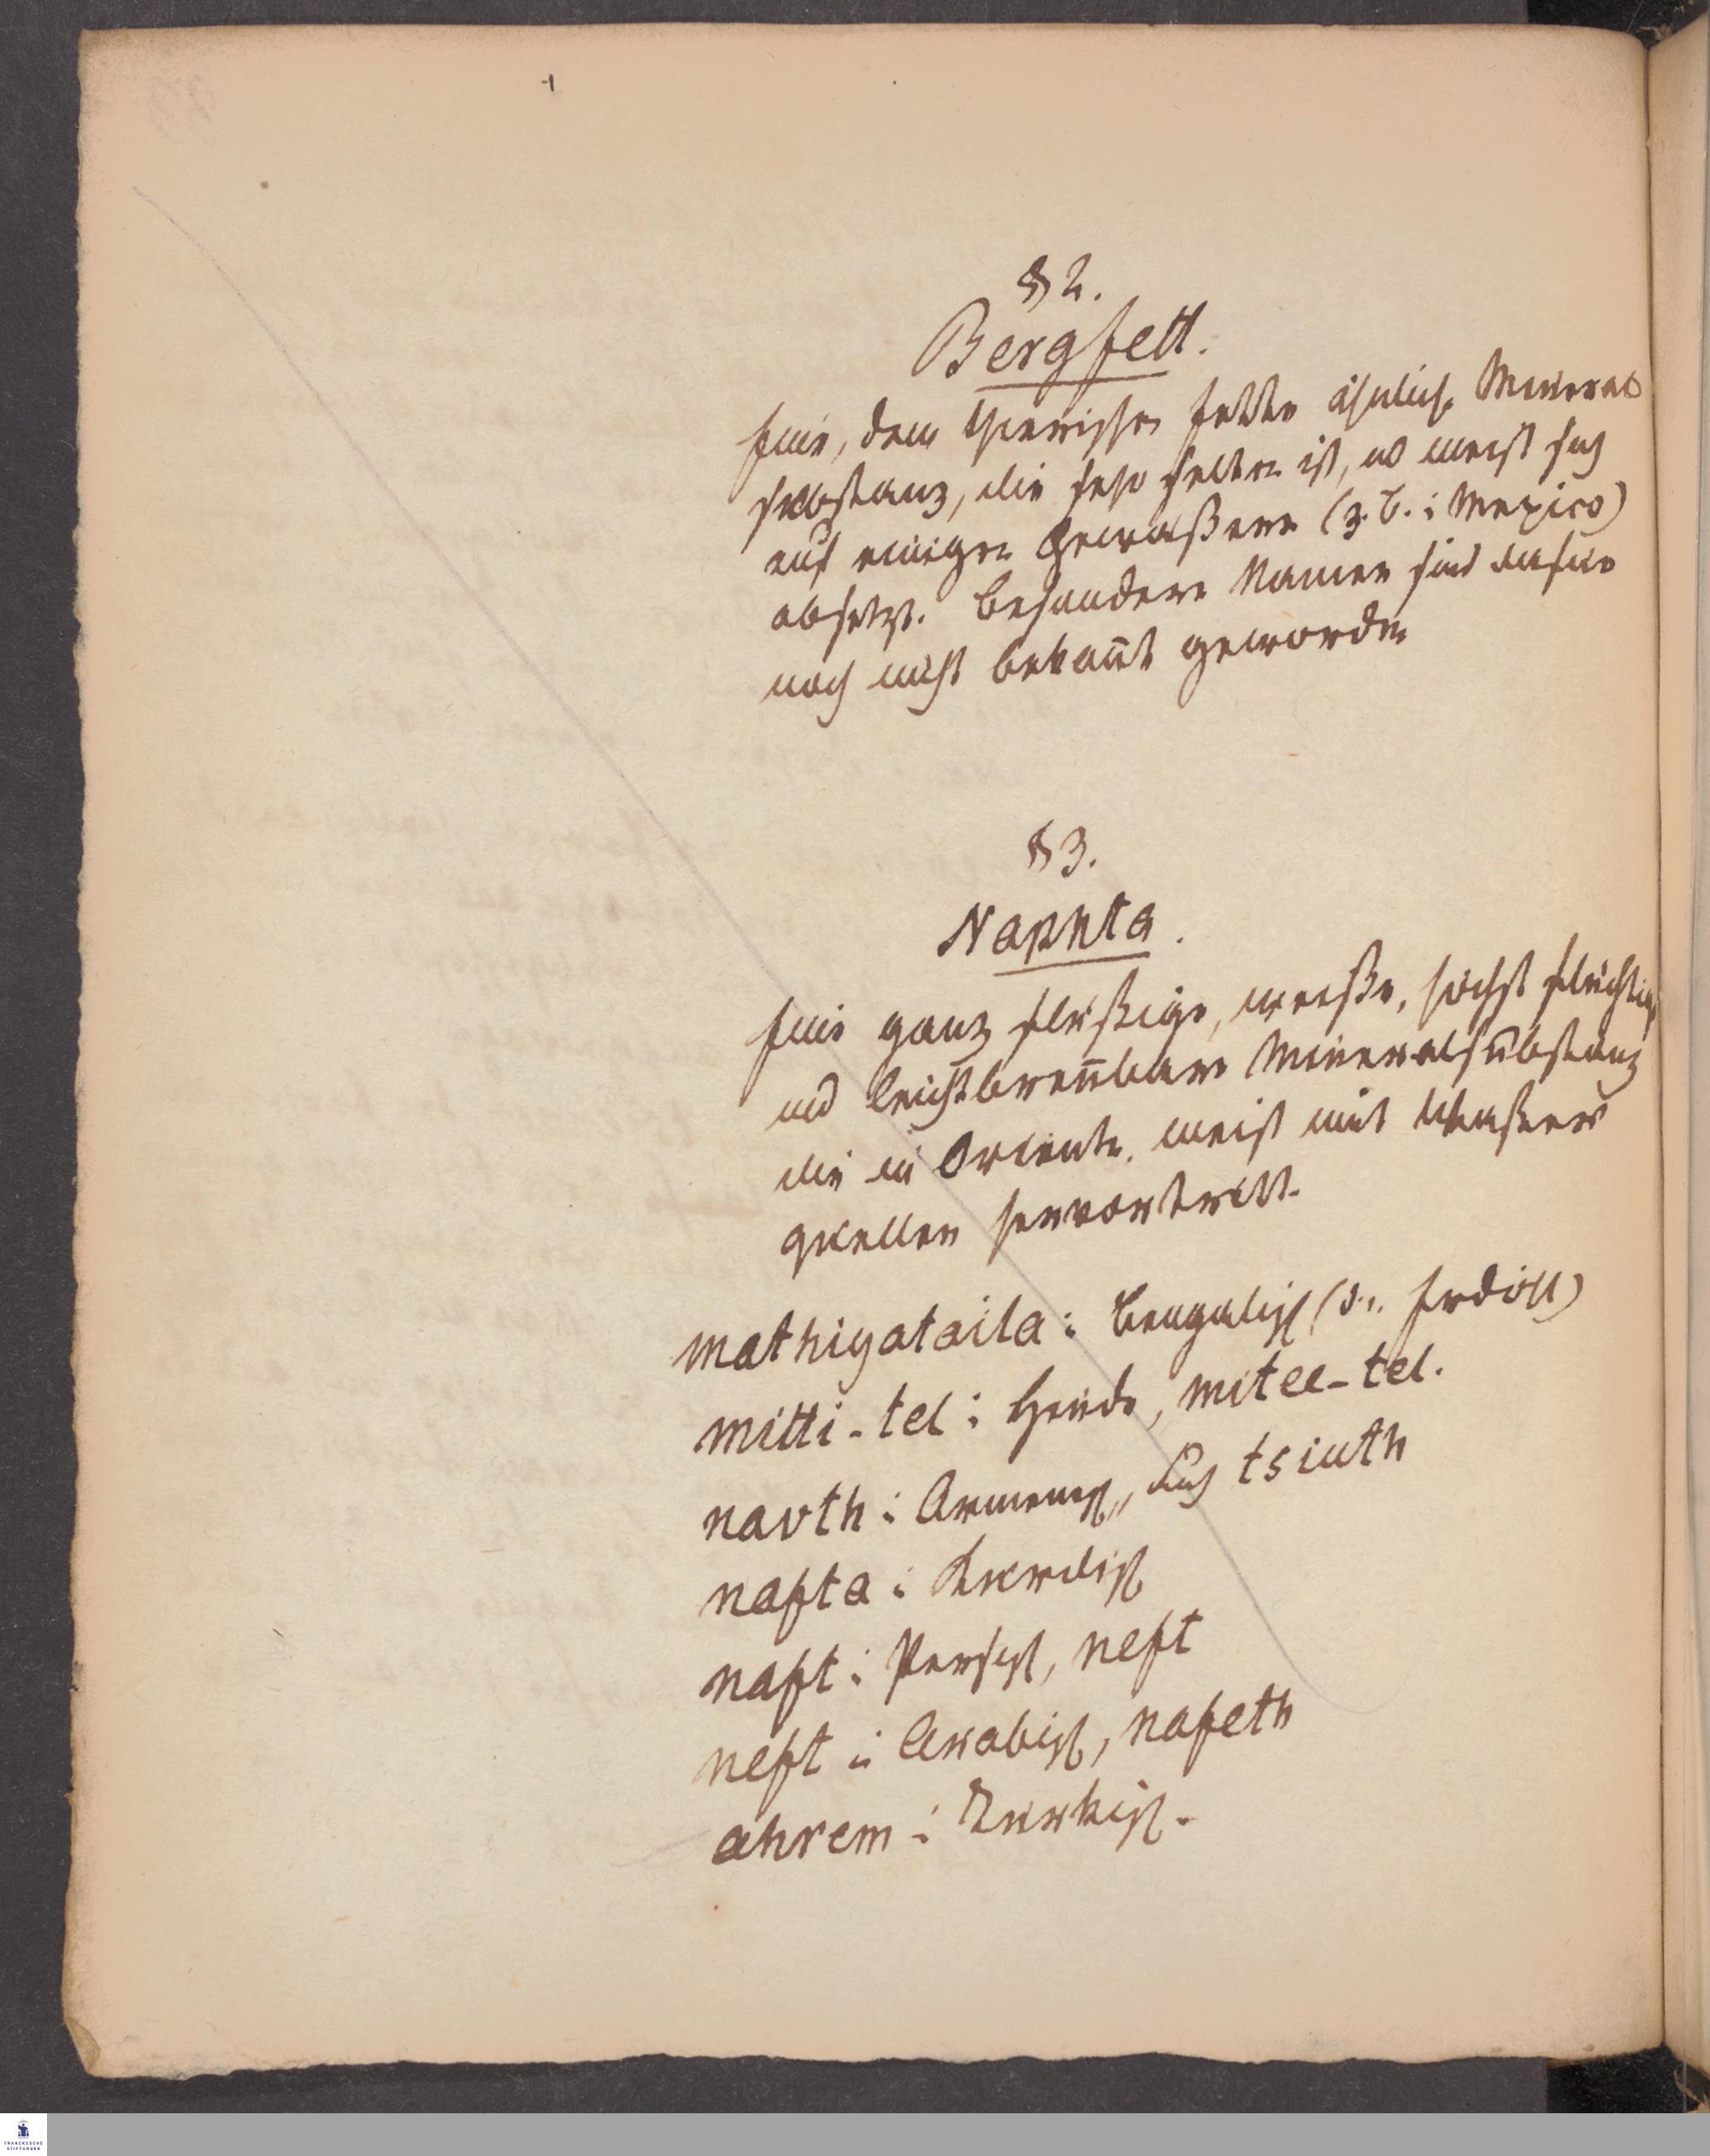 § 2.
Bergfett.
Eine, dem thierischen Fette ähnliche Mineral
substanz, die sehr selten ist, u meist sich
auf einigen Gewäßern (z. B. i Mexico)
absetzt. Besondere Namen sind dafür
noch nicht bekañt geworden
§ 3.
Naphta.
Eine ganz flüßige, weiße, höchst flüchtige
und leichtbreñbare Mineralsubstanz
die im Oriente, meist mit Wasser
quellen hervortritt.
mathigataila : Bengalisch (d. i. Erdöll)
mitti-tel : Hindo, mitee-tel.
navth : Armenisch, auch tsiuth
nafta : Kurdisch
naft : Persisch, neft
neft : Arabisch, nafeth
ahrem : Türkisch.
FRANCKESCHE
STIFTUNGEN